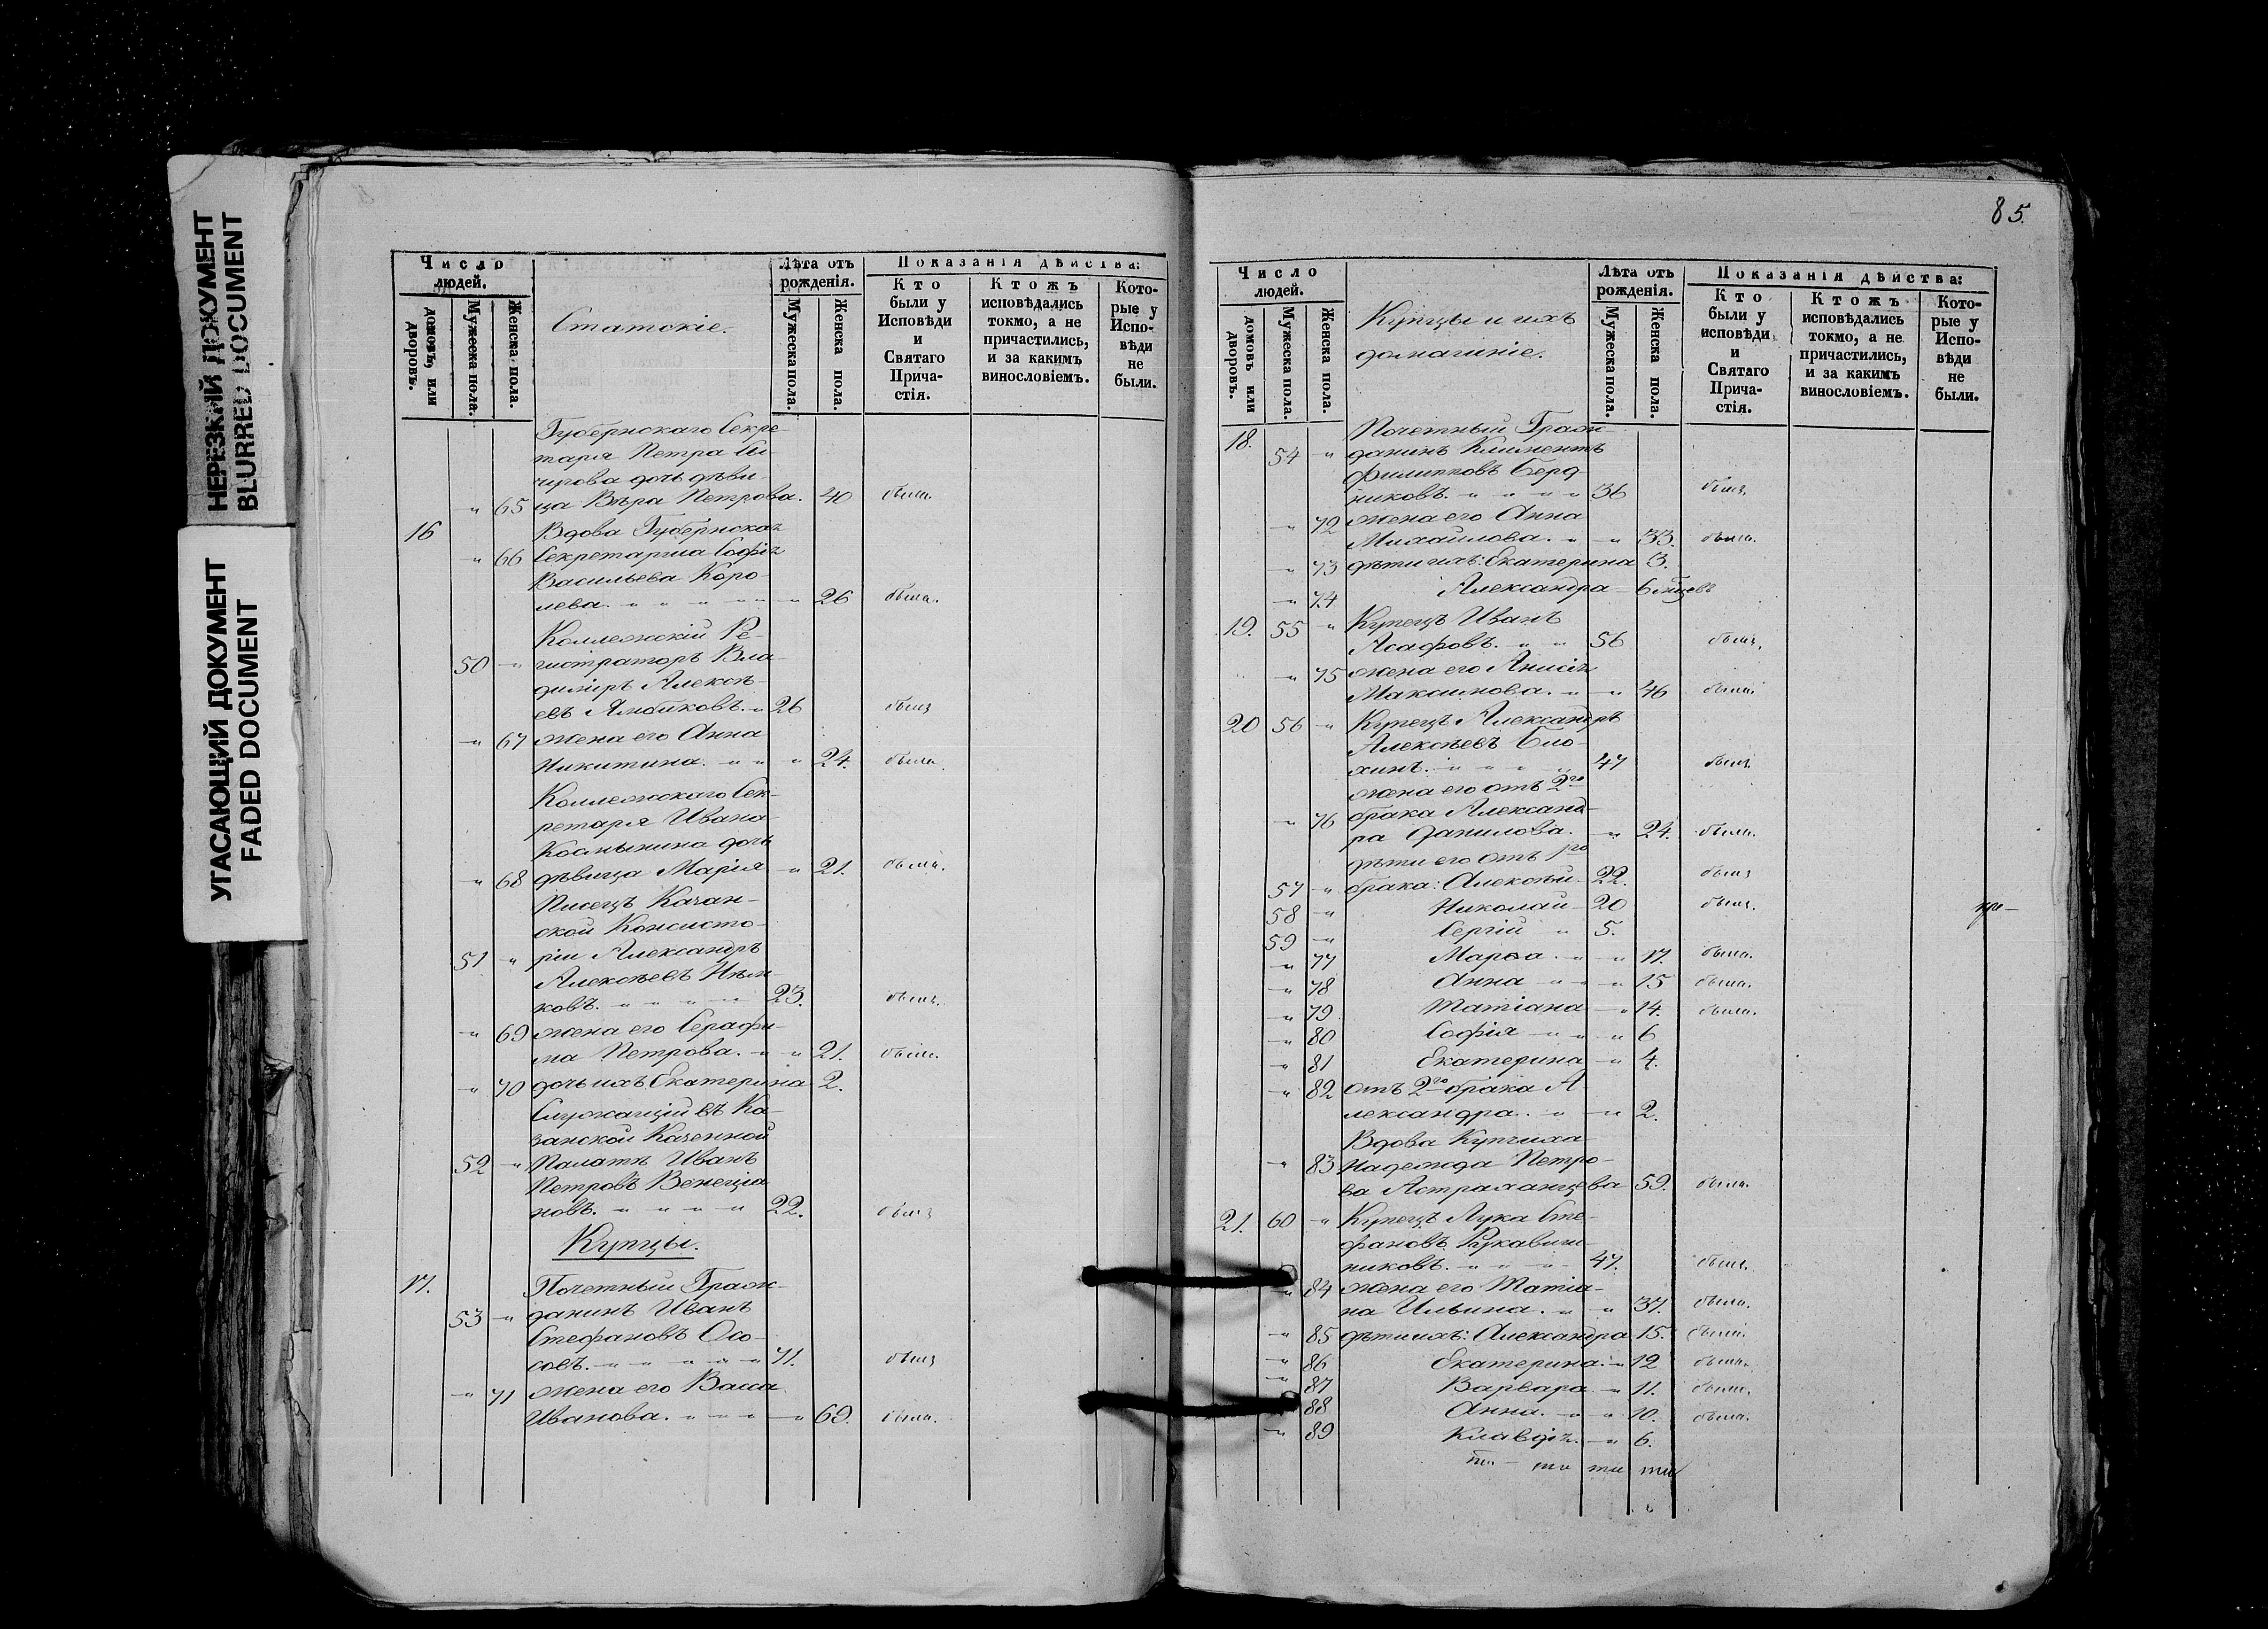 НЕРЕЗКИЙ ДОКУМЕНТ
BLURRED DOCUMENT
УГАСАЮЩИЙ ДОКУМЕНТ
FADED DOCUMENT
Число людей.
домовъ, или дворовъ.
Мужеска пола.
Женска пола.
Статскіе.
Лѣта отъ рожденія.
Мужеска пола.
Женска пола.
Показанія дѣйства:
Кто были у Исповѣди и Святаго Прича-стія.
Ктожъ исповѣдались токмо, а не причастились, и за какимъ винословіемъ.
Кото-рые у Испо-вѣди не были.
Губернскаго Секре-
таря Петра
дочь дѣви-
" 65 ца Вѣра Петрова. 40 была.
16 Вдова Губернская
" 66 Секретарша Софія
Васильева Коро-
лева. " " " " " " 26 была.
Коллежскій Ре-
50 " гистраторъ Вла-
димиръ Алексѣ-
евъ Ямбиковъ. " 26 былъ
" 67 жена его Анна
Никитина. " " " 24. была.
Коллежскаго Сек-
ретаря Ивана
дочь
" 68 дѣвица Марія " 21. была.
Писецъ Казан-
ской Консисто-
51 " ріи Александръ
Алексѣевъ
ковъ. " " " " " 23. былъ.
" 69 жена его Серафи-
ма Петрова. " " 21. была.
" 70 дочь ихъ Екатерина 2.
Служащій въ Ка-
занской Казенной
52 " Палатѣ Иванъ
Петровъ Венеціа-
новъ. " " " " 22. былъ
Купцы.
17. Почетный Граж-
53 " данинъ Иванъ
Стефановъ Осо-
совъ. " " " " " 71. былъ
" 71 жена его Васса
Иванова. " " " " 69. была.
85.
Число людей.
домовъ или дворовъ.
Мужеска пола.
Женска пола.
Купцы и ихъ
домашніе.
Лѣта отъ рожденія.
Мужеска пола.
Женска пола.
Показанія дѣйства:
Кто были у исповѣди и Святаго Прича-стія.
Ктожъ исповѣдались токмо, а не причастились, и за какимъ винословіемъ.
Кото-рые у Испо-вѣди не были.
18. Почетный Граж-
54 " данинъ Климентъ
Филипповъ Берд-
никовъ. " " " " 36 былъ.
" 72 жена его Анна
Михайлова. " " 33. была.
" 73 дѣти ихъ: Екатерина 3.
" 74 Александра 6
19. 55 " Купецъ Иванъ
Асафовъ. " " 56 былъ.
" 75 жена его Анисія
Максимова. " " 46 была.
20 56 " Купецъ Александръ
Алексѣевъ Бло-
хинъ. " " " " 47 былъ
жена его отъ 2го
" 76 брака Александ-
ра Данилова. " 24. была.
дѣти его отъ 1го
57 " брака: Алексѣй 22. былъ
58 " Николай 20 былъ.
59 " Сергій " 5.
" 77 Марѳа. " " 17. была.
" 78 Анна " " " 15 была.
" 79 Татіана " 14. была.
" 80 Софія " " " 6
" 81 Екатерина " 4.
" 82 отъ 2го брака А-
лександра. " " 2.
Вдова Купчиха
" 83 Надежда Петро-
ва Астраханцева 59. была.
21. 60 " Купецъ Лука Сте-
фановъ Рукавиш-
никовъ. " " " " 47. былъ.
" 84 жена его Татіа-
на Ильина. " " 37. была.
" 85 дѣти ихъ: Александра 15. была.
" 86 Екатерина. " 12 была.
" 87 Варвара " 11. была.
88 Анна. " " 10. была.
" 89 Клавдія. " 6.